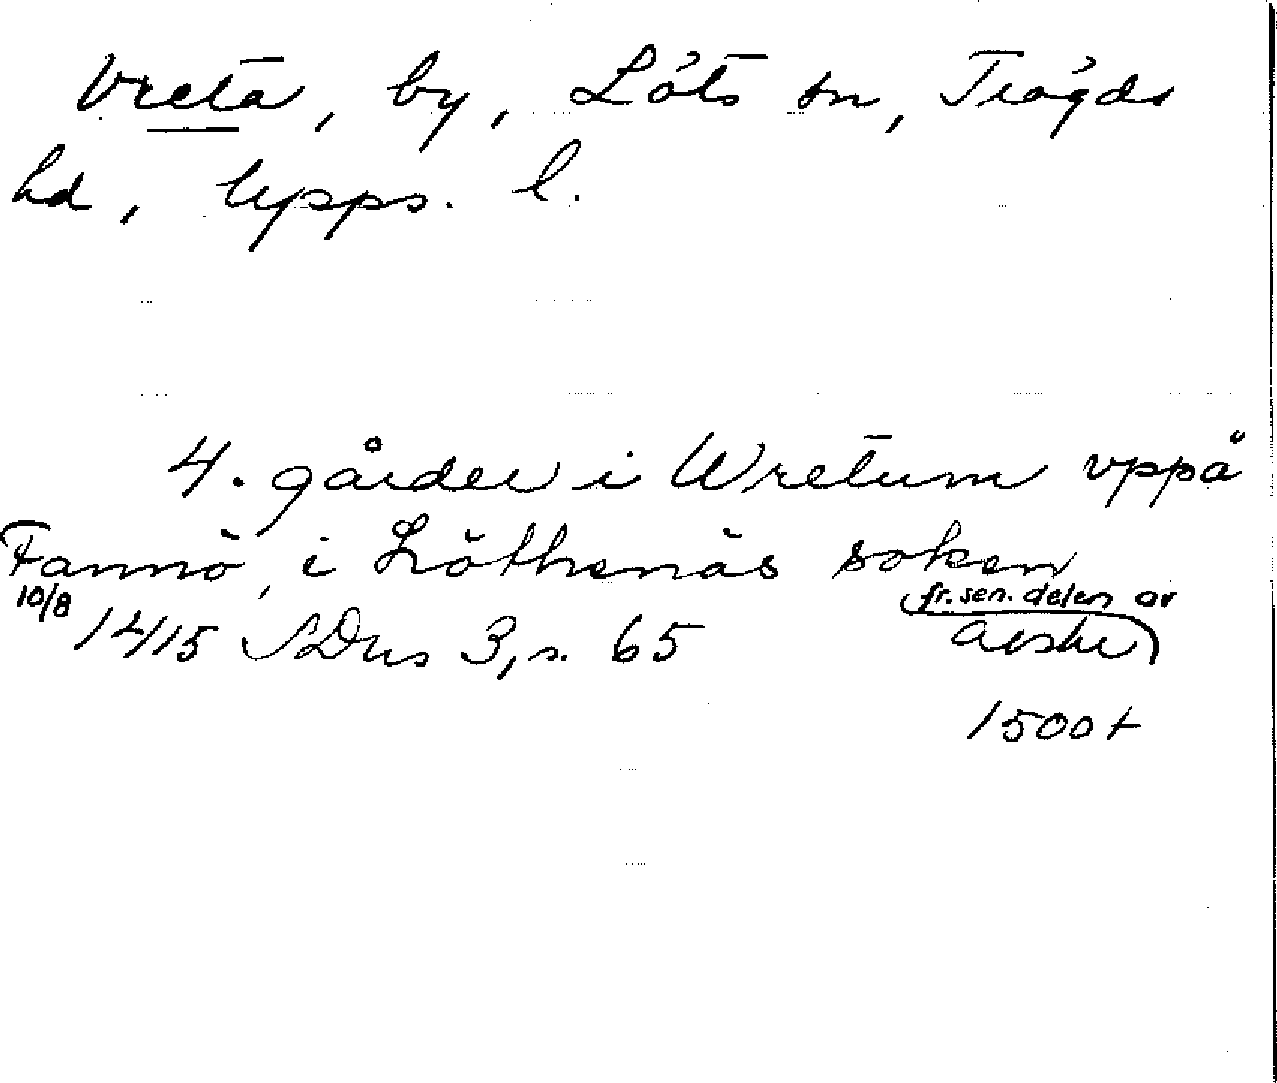 Vreta, by, Löts sn, Trögds
hd, Upps. l.
4. gårder i Wretum vppå
Fannö, i Löthenäs soken
10/8 1415 SDns 3, s. 65 (fr. sen. delen av
avskr)
1500t